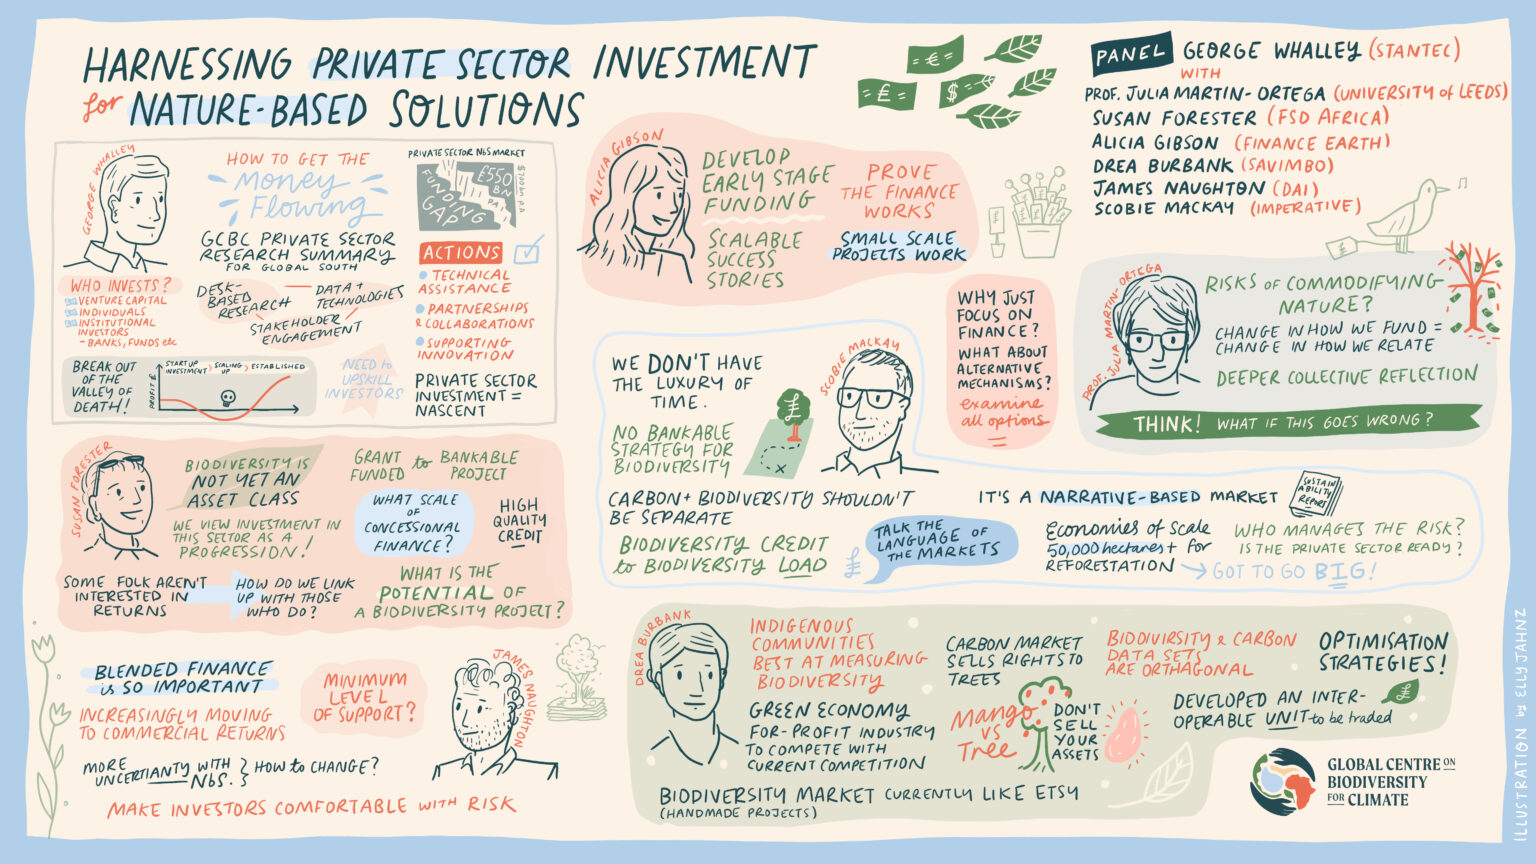 HARNESSING PRIVATE SECTOR INVESTMENT
for NATURE-BASED SOLUTIONS
PANEL GEORGE WHALLEY (STANTEC)
WITH
PROF. JULIA MARTIN-ORTEGA (UNIVERSITY of LEEDS)
SUSAN FORESTER (FSD AFRICA)
ALICIA GIBSON (FINANCE EARTH)
DREA BURBANK (SAVIMBO)
JAMES NAUGHTON (DAI)
SCOBIE MACKAY (IMPERATIVE)
GEORGE WHALLEY
HOW TO GET THE
Money
Flowing
GCBC PRIVATE SECTOR
RESEARCH SUMMARY
FOR GLOBAL SOUTH
DESK-
BASED
RESEARCH
DATA +
TECHNOLOGIES
STAKEHOLDER
ENGAGEMENT
PRIVATE SECTOR NbS MARKET
FUNDING
GAP
£550
BN
P.A.
$700 bn p.a
ACTIONS
TECHNICAL
ASSISTANCE
PARTNERSHIPS
& COLLABORATIONS
SUPPORTING
INNOVATION
WHO INVESTS?
VENTURE CAPITAL
INDIVIDUALS
INSTITUTIONAL
INVESTORS
- BANKS, FUNDS etc
BREAK OUT
OF THE
VALLEY OF
DEATH!
PROFIT £
START UP
INVESTMENT > SCALING
UP > ESTABLISHED
NEED to
UPSKILL
INVESTORS
PRIVATE SECTOR
INVESTMENT =
NASCENT
ALICIA GIBSON
DEVELOP
EARLY STAGE
FUNDING
SCALABLE
SUCCESS
STORIES
PROVE
THE FINANCE
WORKS
SMALL SCALE
PROJECTS WORK
WHY JUST
FOCUS ON
FINANCE?
WHAT ABOUT
ALTERNATIVE
MECHANISMS?
examine
all options
PROF. JULIA MARTIN-ORTEGA
RISKS of COMMODIFYING
NATURE?
CHANGE IN HOW WE FUND =
CHANGE IN HOW WE RELATE
DEEPER COLLECTIVE REFLECTION
THINK! WHAT IF THIS GOES WRONG?
SUSAN FORESTER
BIODIVERSITY IS
NOT YET AN
ASSET CLASS
WE VIEW INVESTMENT IN
THIS SECTOR AS A
PROGRESSION!
GRANT
FUNDED to BANKABLE
PROJECT
WHAT SCALE
OF
CONCESSIONAL
FINANCE?
HIGH
QUALITY
CREDIT
SOME FOLK AREN'T
INTERESTED IN
RETURNS
HOW DO WE LINK
UP WITH THOSE
WHO DO?
WHAT IS THE
POTENTIAL OF
A BIODIVERSITY PROJECT?
SCOBIE MACKAY
WE DON'T HAVE
THE LUXURY OF
TIME.
NO BANKABLE
STRATEGY FOR
BIODIVERSITY
CARBON + BIODIVERSITY SHOULDN'T
BE SEPARATE
BIODIVERSITY CREDIT
to BIODIVERSITY LOAD
TALK THE
LANGUAGE OF
THE MARKETS
IT'S A NARRATIVE-BASED MARKET
SUSTAIN
ABILITY
REPORT
Economies of scale
50,000 hectares + for
REFORESTATION
GOT TO GO BIG!
WHO MANAGES THE RISK?
IS THE PRIVATE SECTOR READY?
BLENDED FINANCE
is SO IMPORTANT
INCREASINGLY MOVING
TO COMMERCIAL RETURNS
MINIMUM
LEVEL
OF SUPPORT?
JAMES NAUGHTON
MORE
UNCERTIANTY WITH
NbS. } HOW to CHANGE?
MAKE INVESTORS COMFORTABLE WITH RISK
DREA BURBANK
INDIGENOUS
COMMUNITIES
BEST AT MEASURING
BIODIVERSITY
GREEN ECONOMY
FOR-PROFIT INDUSTRY
TO COMPETE WITH
CURRENT COMPETITION
CARBON MARKET
SELLS RIGHTS TO
TREES
Mango
vs
Tree
DON'T
SELL
YOUR
ASSETS
BIODIVIRSITY & CARBON
DATA SETS
ARE ORTHAGONAL
OPTIMISATION
STRATEGIES!
DEVELOPED AN INTER-
OPERABLE UNIT to be traded
BIODIVERSITY MARKET CURRENTLY LIKE ETSY
(HANDMADE PROJECTS)
GLOBAL CENTRE ON
BIODIVERSITY
FOR CLIMATE
ILLUSTRATION by ELLY JAHNZ